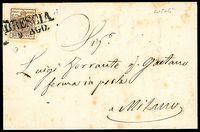 BRESCIA
9 AGO.
Sig.r
Luigi Ferrante q.m Gaetano
ferma in posta
a Milano